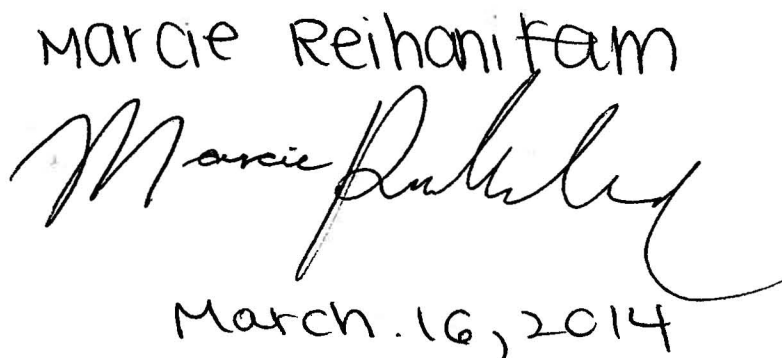 Marcie Reihanifam
Marcie
March.16, 2014